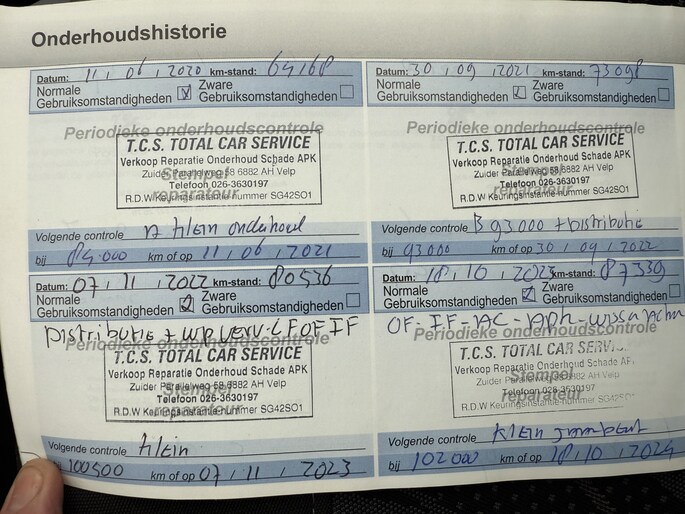 Onderhoudshistorie
Datum: 11 , 06 , 2020 km-stand: 64168
Normale Gebruiksomstandigheden Zware Gebruiksomstandigheden
Periodieke onderhoudscontrole
T.C.S. TOTAL CAR SERVICE
Verkoop Reparatie Onderhoud Schade APK
Zuider Parallelweg 58 6882 AH Velp
Telefoon 026-3630197
R.D.W Keuringsinstantie-nummer SG42SO1
Stempel reparateur
Volgende controle klein onderhoud
bij 84.000 km of op 11 , 06 , 2021
Datum: 30 , 09 , 2021 km-stand: 73098
Normale Gebruiksomstandigheden Zware Gebruiksomstandigheden
Periodieke onderhoudscontrole
T.C.S. TOTAL CAR SERVICE
Verkoop Reparatie Onderhoud Schade APK
Zuider Parallelweg 58 6882 AH Velp
Telefoon 026-3630197
R.D.W Keuringsinstantie-nummer SG42SO1
Stempel reparateur
Volgende controle B 93.000 + Distributie
bij 93000 km of op 30 , 09 , 2022
Datum: 07 , 11 , 2022 km-stand: 80536
Normale Gebruiksomstandigheden Zware Gebruiksomstandigheden
Distributie + WP VERV. LF OF IF
Periodieke onderhoudscontrole
T.C.S. TOTAL CAR SERVICE
Verkoop Reparatie Onderhoud Schade APK
Zuider Parallelweg 58 6882 AH Velp
Telefoon 026-3630197
R.D.W Keuringsinstantie-nummer SG42SO1
Stempel reparateur
Volgende controle klein
bij 100500 km of op 07 , 11 , 2023
Datum: 18 , 10 , 2023 km-stand: 87339
Normale Gebruiksomstandigheden Zware Gebruiksomstandigheden
OF - IF - AC - APK
Periodieke onderhoudscontrole
T.C.S. TOTAL CAR SERV
Verkoop Reparatie Onderhoud Schade AP
Zuider Parallelweg 58 6882 AH Velp
Telefoon 026-3630197
R.D.W Keuringsinstantie-nummer SG42SO
Stempel reparateur
Volgende controle Klein
bij 102000 km of op 18 , 10 , 2024